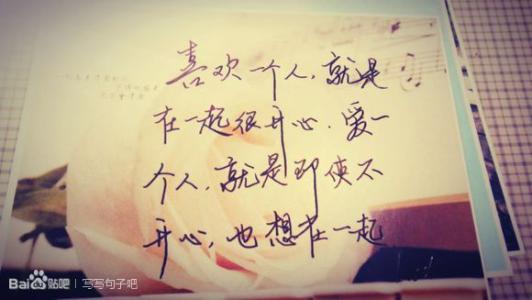 喜欢一个人，就是
在一起很开心，爱一
个人，就是即使不
开心，也想在一起
Bai贴吧 | 写写句子吧